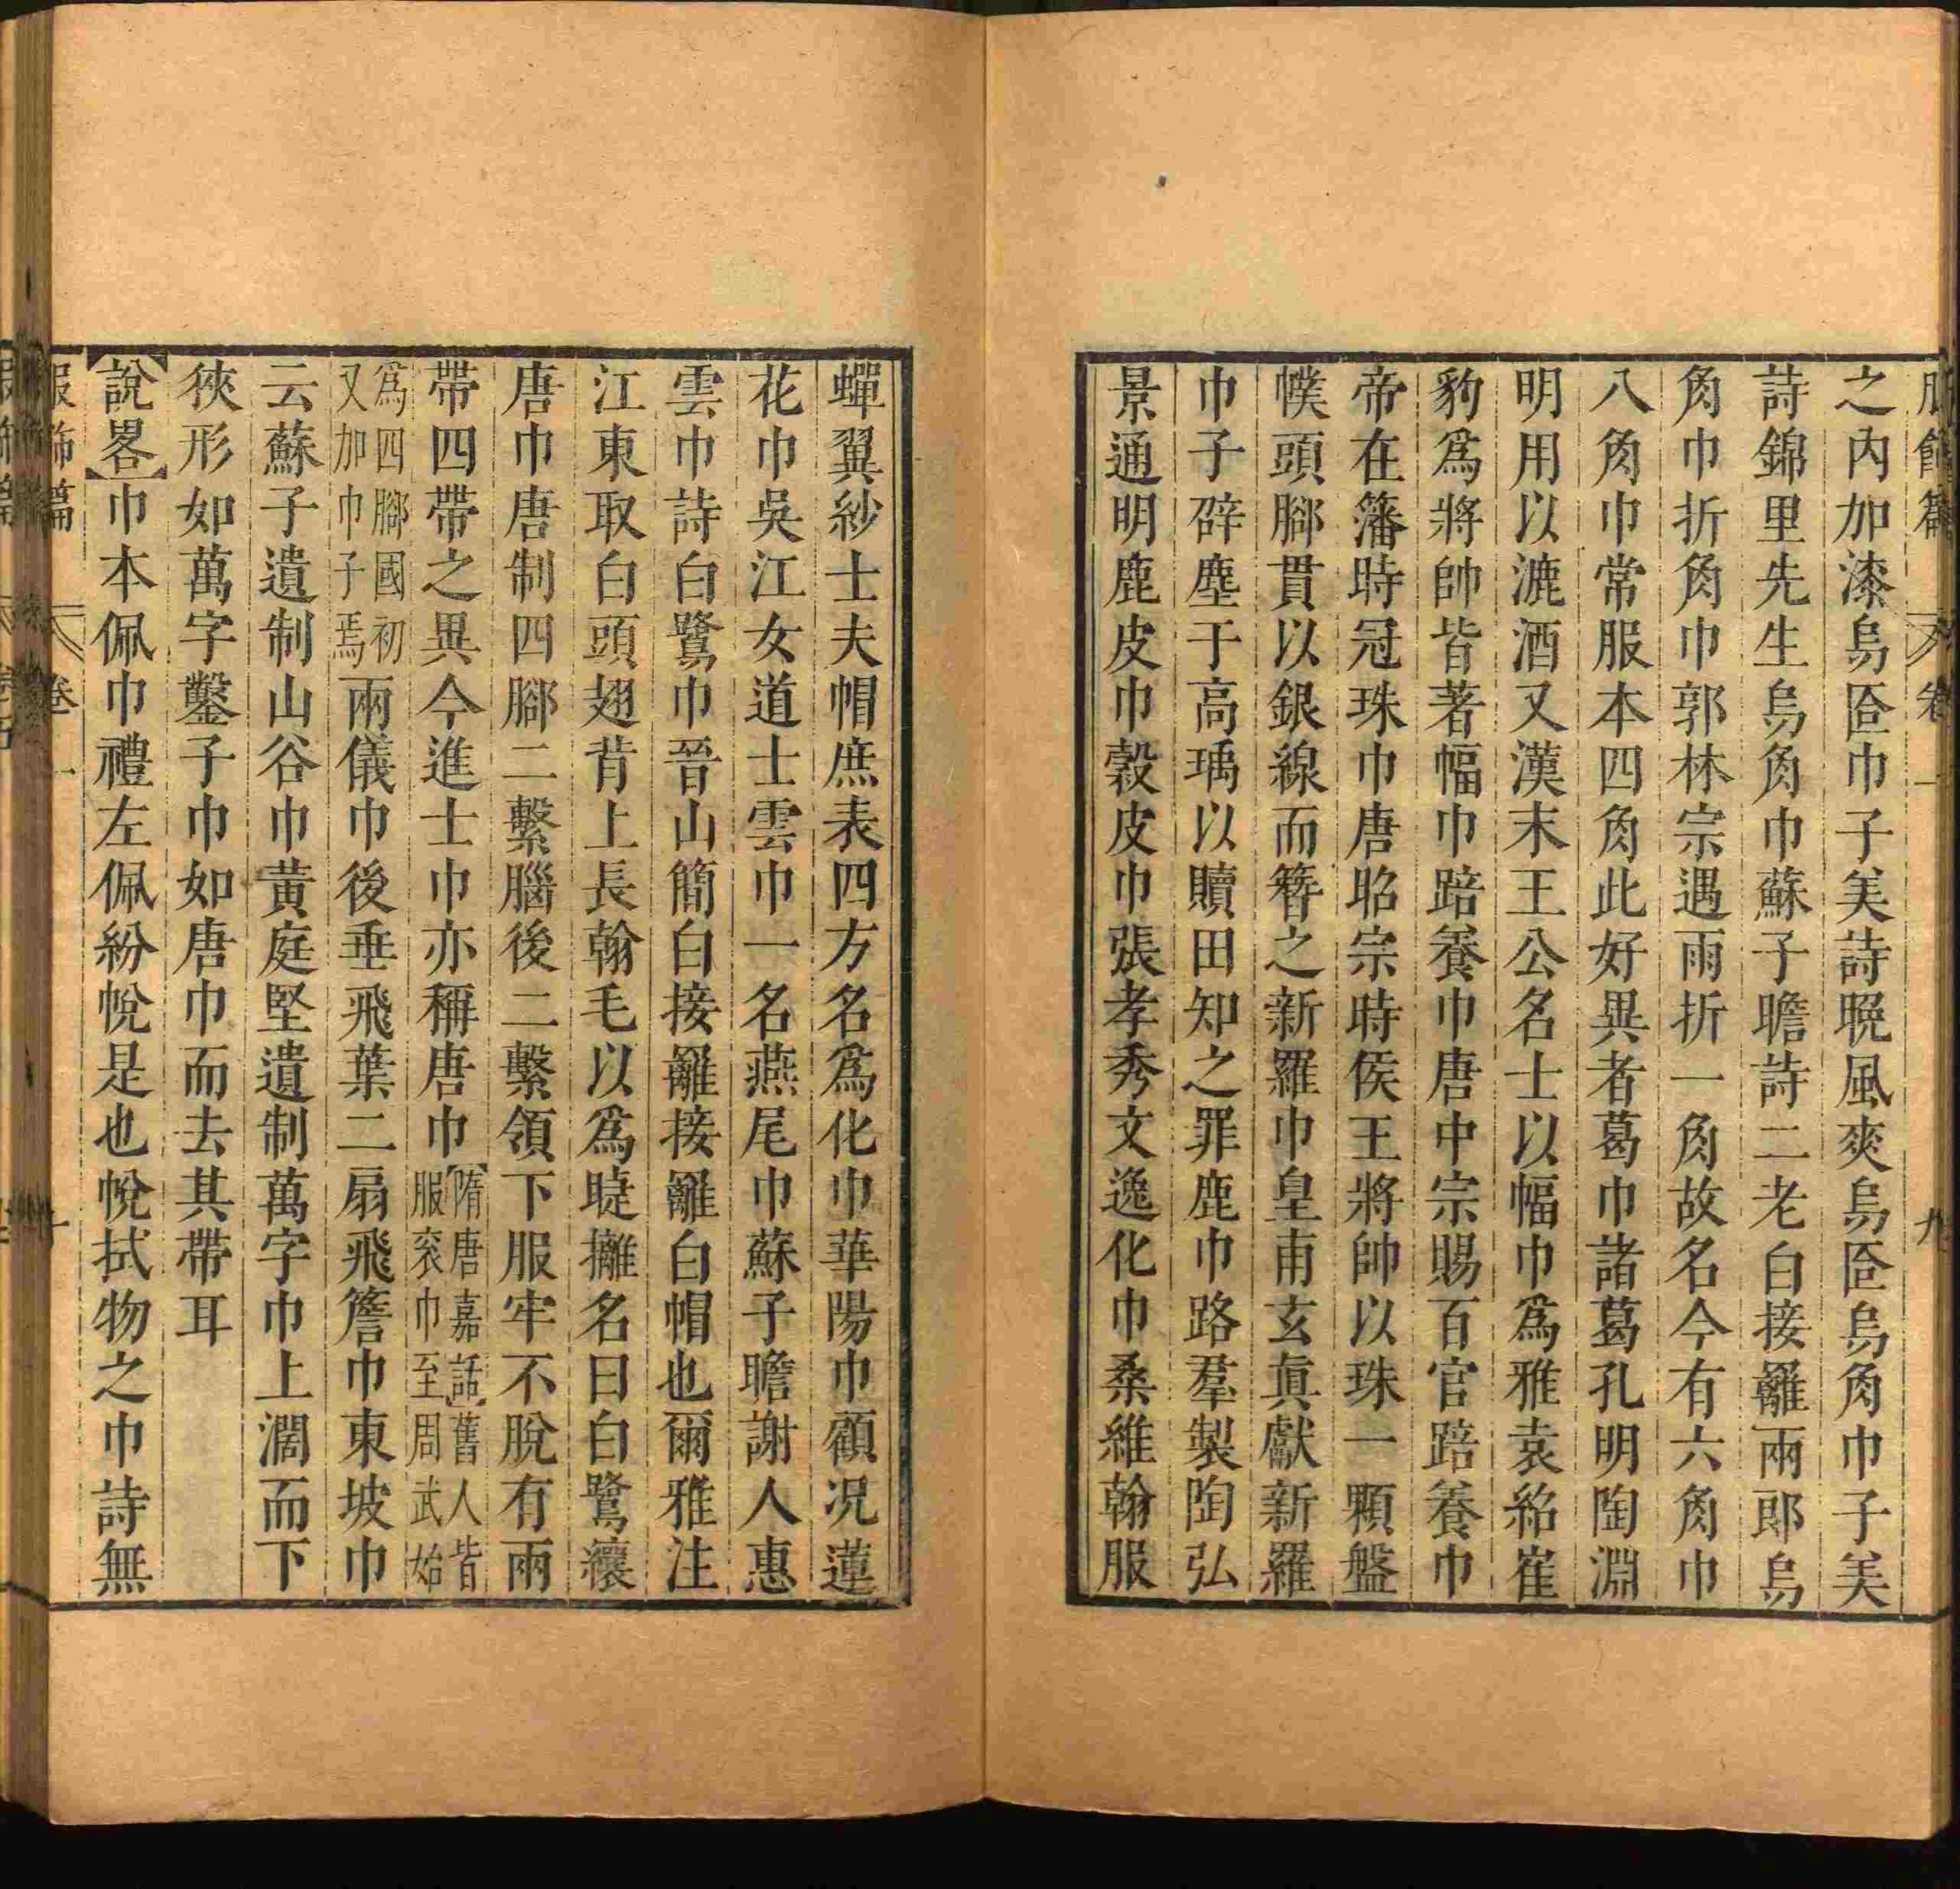 之內加漆烏匼巾子美詩晚風爽烏匼烏角巾子美
詩錦里先生烏角巾蘇子瞻詩二老白接䍦兩郎烏
角巾折角巾郭林宗遇雨折一角故名今有六角巾
八角巾常服本四角此好異者葛巾諸葛孔明陶淵
明用以漉酒又漢末王公名士以幅巾爲雅袁紹崔
豹爲將帥皆著幅巾踣養巾唐中宗賜百官踣養巾
帝在籓時冠珠巾唐昭宗時侯王將帥以珠一顆盤
幞頭腳貫以銀線而簪之新羅巾皇甫玄眞獻新羅
巾子辟塵于高瑀以贖田知之罪鹿巾路羣製陶弘
景通明鹿皮巾穀皮巾張孝秀文逸化巾桑維翰服
蟬翼紗士夫帽庶表四方名爲化巾華陽巾顧况蓮
花巾吳江女道士雲巾一名燕尾巾蘇子瞻謝人惠
雲巾詩白鷺巾晉山簡白接䍦接䍦白帽也爾雅注
江東取白頭翅背上長翰毛以爲睫攡名曰白鷺纕
唐巾唐制四腳二繫腦後二繫領下服牢不脫有兩
帶四帶之異今進士巾亦稱唐巾隋唐嘉話舊人皆服衮巾至周武始
爲四腳國初又加巾子焉兩儀巾後垂飛葉二扇飛簷巾東坡巾
云蘇子遺制山谷巾黃庭堅遺制萬字巾上濶而下
狹形如萬字鑿子巾如唐巾而去其帶耳
說畧巾本佩巾禮左佩紛帨是也帨拭物之巾詩無
服飾篇 卷一 十